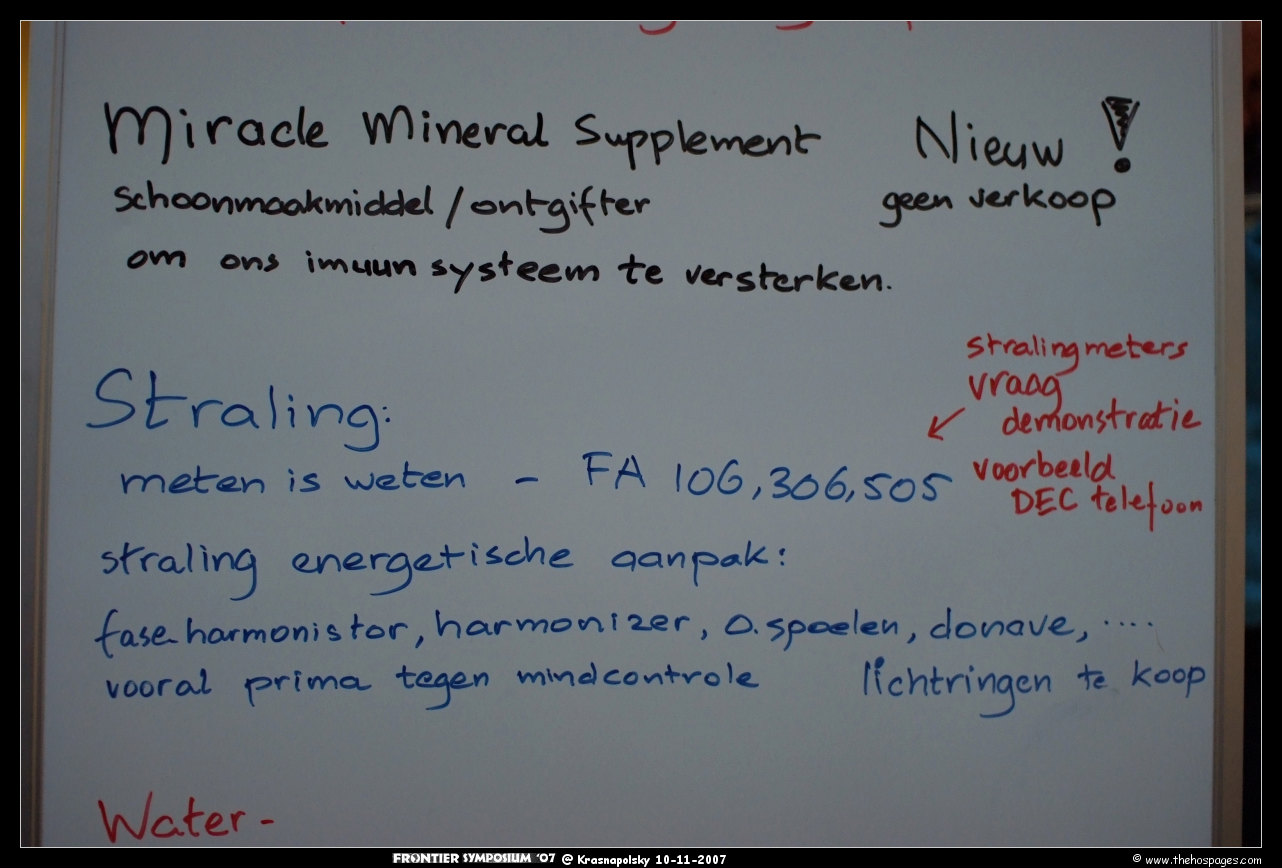 Miracle Mineral Supplement Nieuw!
schoonmaakmiddel/ontgifter geen verkoop
om ons imuun systeem te versterken.
stralingmeters
vraag
demonstratie
Straling:
meten is weten - FA 106,306,505
voorbeeld
DEC telefoon
straling energetische aanpak:
faseharmonistor, harmonizer, o.spoelen, donave, ....
vooral prima tegen mindcontrole lichtringen te koop
Water -
FRONTIER SYMPOSIUM '07 @ Krasnapolsky 10-11-2007
© www.thehospages.com